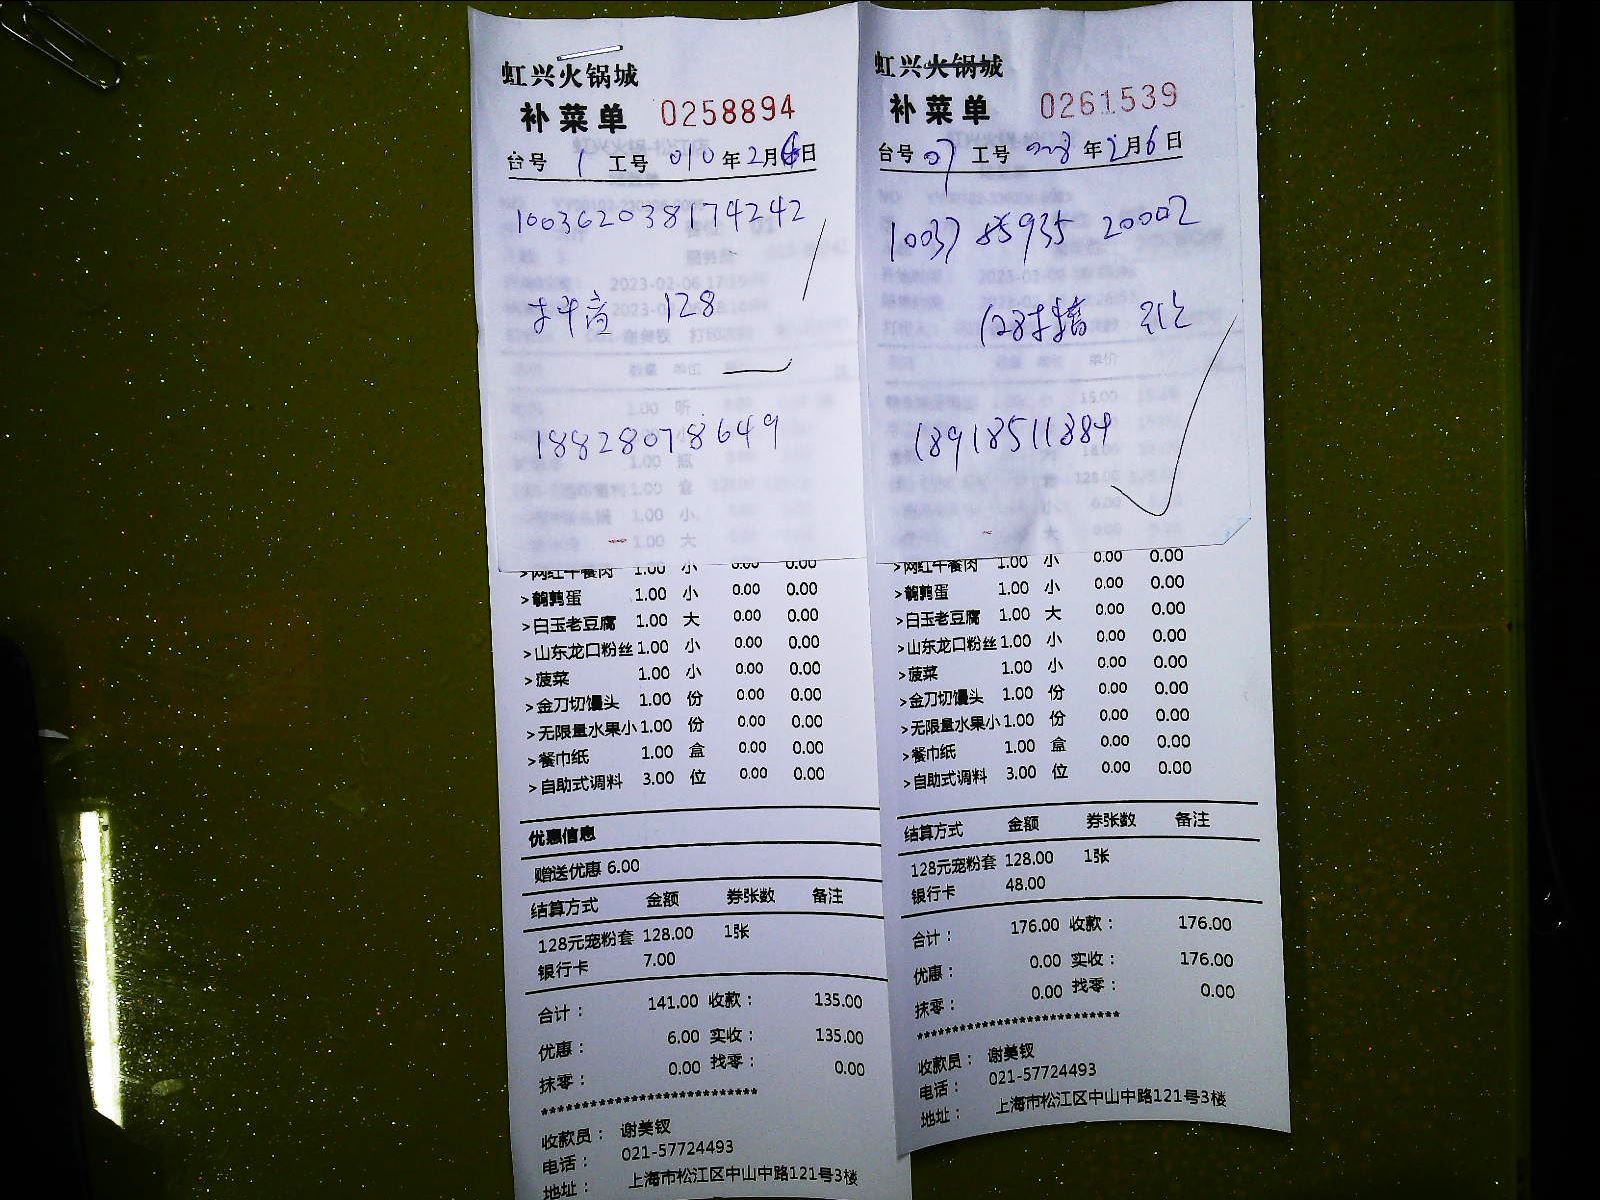 虹兴火锅城
补菜单 0258894
台号 1 工号 010 年 2月6日
100362038174242
抖音 128
18828078649
1.00 听
1.00 瓶
1.00 套
1.00 小
1.00 大
>网红午餐肉 1.00 小 0.00 0.00
>鹌鹑蛋 1.00 小 0.00 0.00
>白玉老豆腐 1.00 大 0.00 0.00
>山东龙口粉丝 1.00 小 0.00 0.00
>菠菜 1.00 小 0.00 0.00
>金刀切馒头 1.00 份 0.00 0.00
>无限量水果小 1.00 份 0.00 0.00
>餐巾纸 1.00 盒 0.00 0.00
>自助式调料 3.00 位 0.00 0.00
优惠信息
赠送优惠 6.00
结算方式 金额 券张数 备注
128元宠粉套 128.00 1张
银行卡 7.00
合计： 141.00 收款： 135.00
优惠： 6.00 实收： 135.00
抹零： 0.00 找零： 0.00
***************************
收款员： 谢美钗
电话： 021-57724493
地址： 上海市松江区中山中路121号3楼
虹兴火锅城
补菜单 0261539
台号 07 工号 028 年 2月6日
10037 85935 20002
128抖音
18918511884
>网红午餐肉 1.00 小 0.00 0.00
>鹌鹑蛋 1.00 小 0.00 0.00
>白玉老豆腐 1.00 大 0.00 0.00
>山东龙口粉丝 1.00 小 0.00 0.00
>菠菜 1.00 小 0.00 0.00
>金刀切馒头 1.00 份 0.00 0.00
>无限量水果小 1.00 份 0.00 0.00
>餐巾纸 1.00 盒 0.00 0.00
>自助式调料 3.00 位 0.00 0.00
结算方式 金额 券张数 备注
128元宠粉套 128.00 1张
银行卡 48.00
合计： 176.00 收款： 176.00
优惠： 0.00 实收： 176.00
抹零： 0.00 找零： 0.00
***************************
收款员： 谢美钗
电话： 021-57724493
地址： 上海市松江区中山中路121号3楼